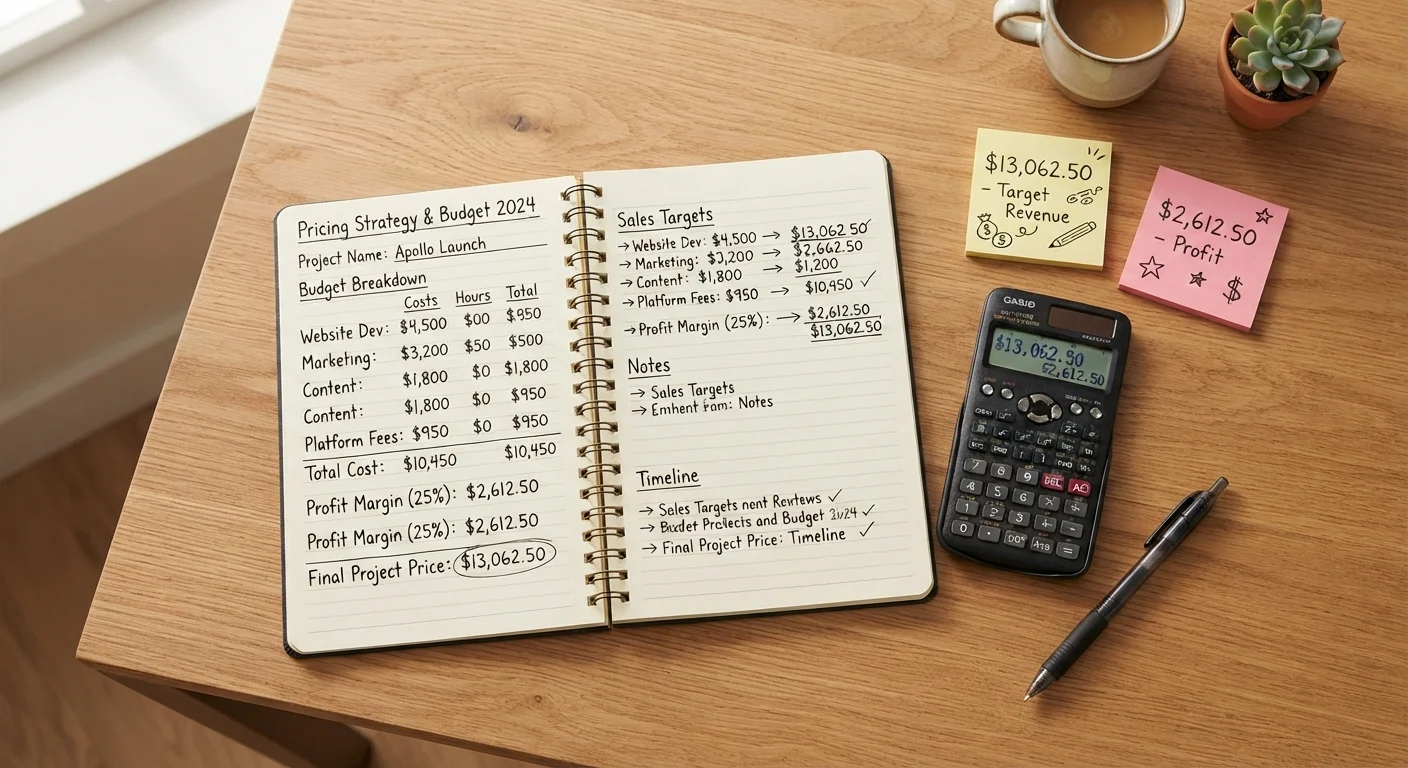 Pricing Strategy & Budget 2024
Project Name: Apollo Launch
Budget Breakdown
Costs Hours Total
Website Dev: $4,500 $00 $950
Marketing: $3,200 $50 $500
Content: $1,800 $0 $1,800
Content: $1,800 $0 $950
Platform Fees: $950 $0 $950
Total Cost: $10,450 $10,450
Profit Margin (25%): $2,612.50
Profit Margin (25%): $2,612.50
Final Project Price: $13,062.50
Sales Targets
→ Website Dev: $4,500 → $13,062.50 ✓
→ Marketing: $3,200 → $2,662.50
→ Content: $1,800 → $1,200
→ Platform Fees: $950 → $10,950 ✓
→ Profit Margin (25%): → $2,612.50
$13,062.50
Notes
→ Sales Targets
→ Notes
Timeline
→ Sales Targets ✓
→ and Budget ✓
→ Final Project Price: Timeline ✓
$13,062.50
- Target
Revenue
$2,612.50
- Profit
$
CASIO
$13,062.50
$2,612.50
7 8 9 DEL AC
0
=